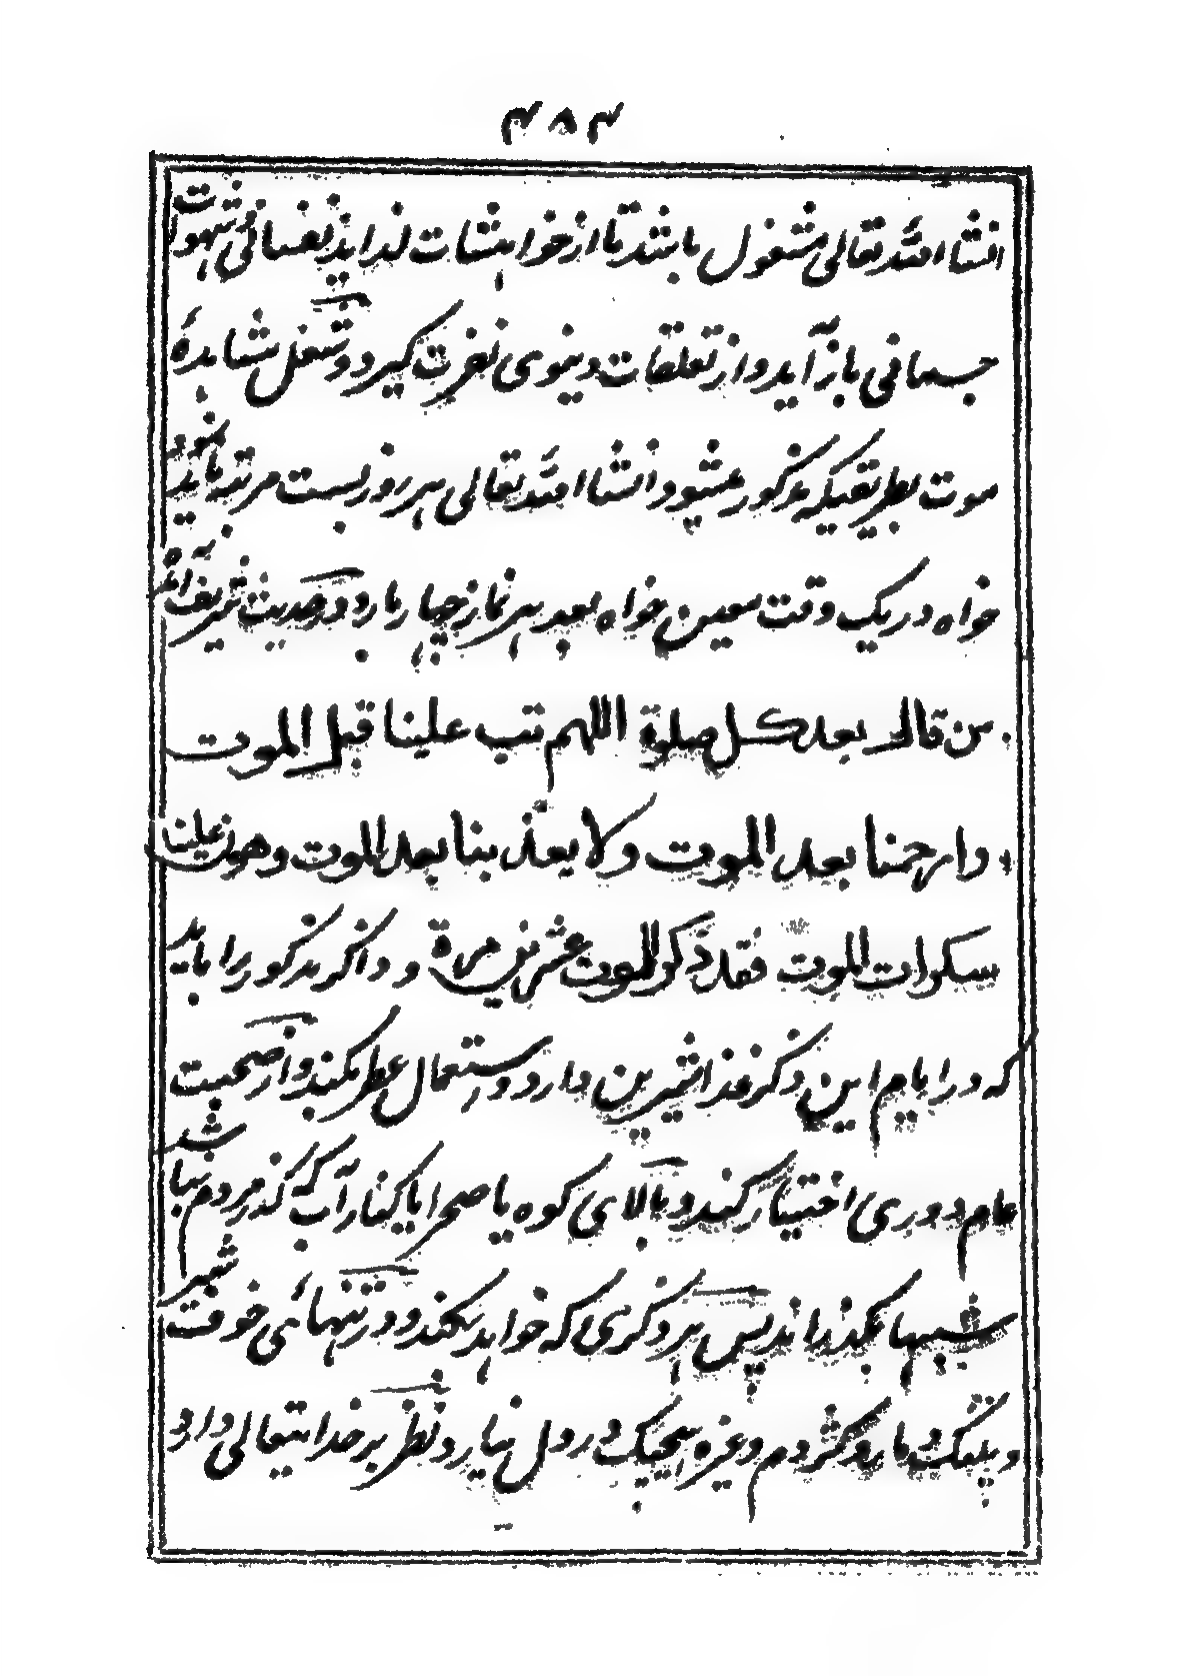 ۴۸۴
انشاء الله تعالی مشغول باشد تا از خواهشات لذایذ نفسانی و شهوات
جسمانی باز آید و از تعلقات دینوی نفرت گیرد و شغل مشاهدهٔ
موت بطریقیکه مذکور میشود انشاء الله تعالی هر روز بست مرتبه باید نمود
خواه در یک وقت معین خواه بعد هر نماز چهار بار و در حدیث شریف
من قال بعد کل صلوة اللهم تب علینا قبل الموت
وارحمنا بعد الموت ولا تعذبنا بعد الموت وهون علینا
سکرات الموت فقد ذکر الموت عشرین مرة و ذاکر مذکور را باید
که در ایام این ذکر غذا شیرین دارد و استعمال عطر بکند و از صحبت
عام دوری اختیار کند و بالای کوه یا صحرا یا کنار آب که گذر مردم نباشد
شبها بگذراند پس هر ذکری که خواهد بکند و در تنهائی خوف شیر
و پلنگ و مار و کژدم و غیره هیچیک در دل نیارد و نظر بر خدایتعالی دارد